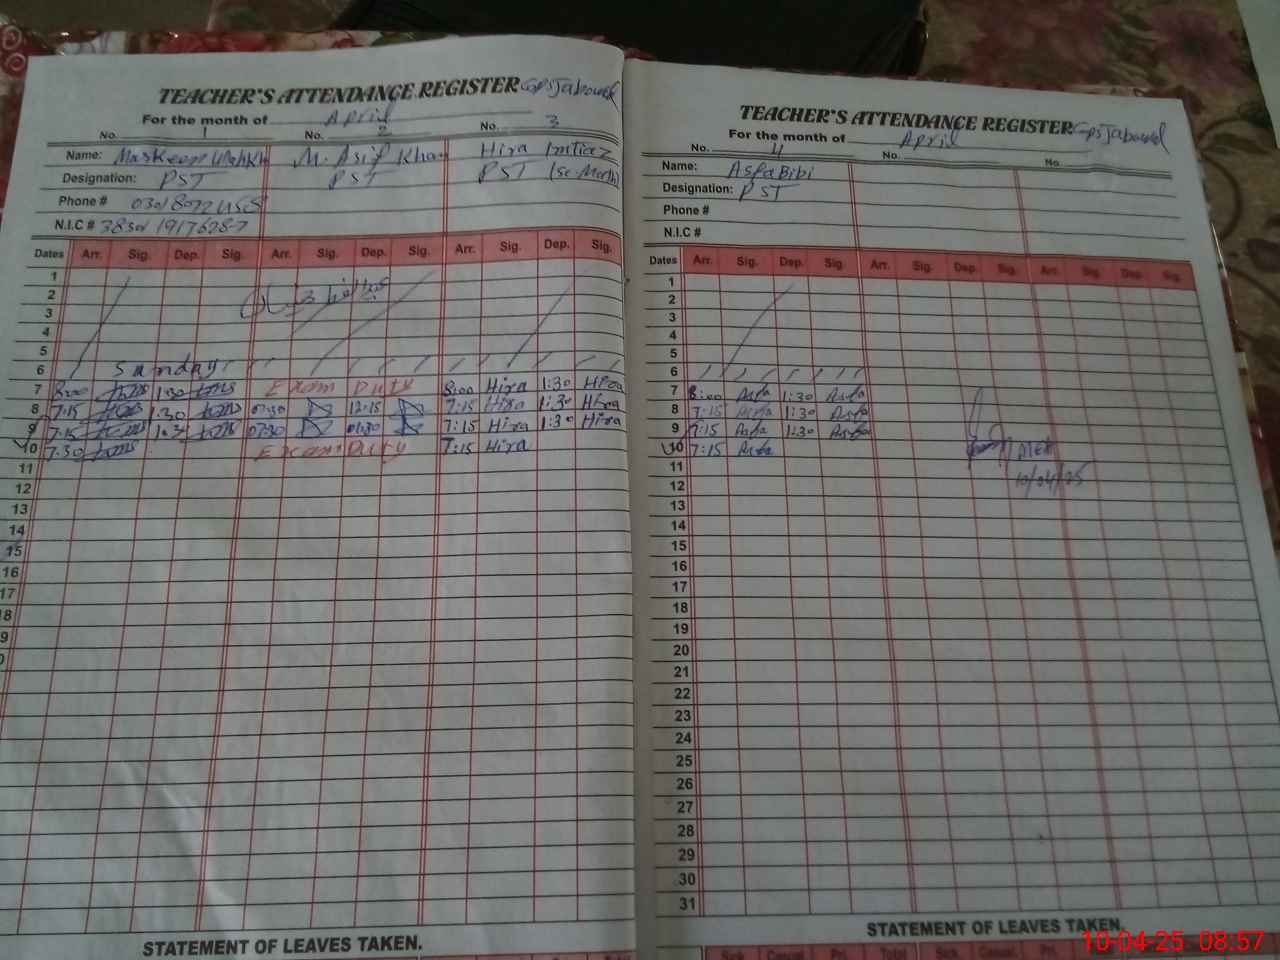 TEACHER'S ATTENDANCE REGISTER GPS Jabowal
For the month of April
No. 1 No. 2 No. 3
Name: Maskeen M. Asif Khan Hira Imtiaz
Designation: PST PST PST
Phone #
N.I.C #
Dates Arr. Sig. Dep. Sig. Arr. Sig. Dep. Sig. Arr. Sig. Dep. Sig.
1
2
3
4
5
6 Sunday
7 8:00 1:30 Exam Duty 8:00 Hira 1:30 Hira
8 7:15 1:30 07:30 12:15 7:15 Hira 1:30 Hira
9 7:15 1:30 07:30 01:30 7:15 Hira 1:30 Hira
10 7:30 Exam Duty 7:15 Hira
11
12
13
14
15
16
17
18
9
0
STATEMENT OF LEAVES TAKEN.
TEACHER'S ATTENDANCE REGISTER GPS Jabowal
For the month of April
No. 4 No. No.
Name: Asfa Bibi
Designation: PST
Phone #
N.I.C #
Dates Arr. Sig. Dep. Sig. Arr. Sig. Dep. Sig. Arr. Sig. Dep. Sig.
1
2
3
4
5
6
7 8:00 Asfa 1:30 Asfa
8 7:15 Asfa 1:30 Asfa
9 7:15 Asfa 1:30 Asfa
10 7:15 Asfa
11
12 10/04/25
13
14
15
16
17
18
19
20
21
22
23
24
25
26
27
28
29
30
31
STATEMENT OF LEAVES TAKEN.
Sick Casual Pri. Total Sick Casual Pri. Total
10-04-25 08:57